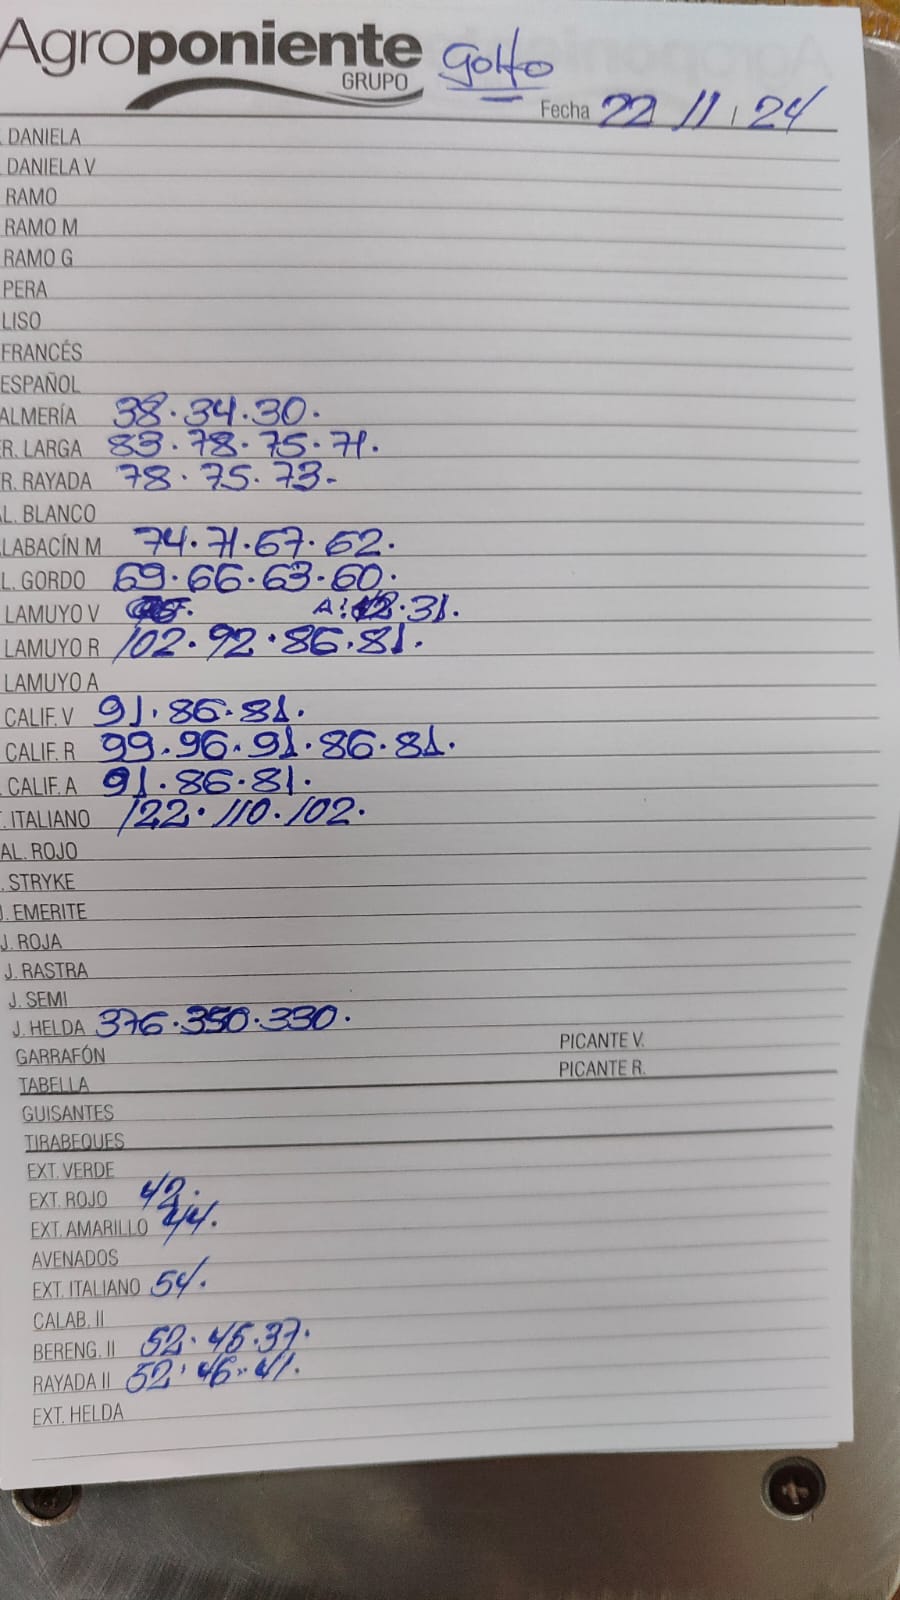 Agroponiente
GRUPO
Golfo
Fecha 22 / 11 / 24
DANIELA
DANIELA V
RAMO
RAMO M
RAMO G
PERA
LISO
FRANCÉS
ESPAÑOL
ALMERÍA 38. 34. 30.
R. LARGA 83. 78. 75. 71.
R. RAYADA 78. 75. 73-
L. BLANCO
LABACÍN M 74. 71. 67. 62.
L. GORDO 69. 66. 63. 60.
LAMUYO V A: 31.
LAMUYO R 102. 92. 86. 81.
LAMUYO A
CALIF. V 91. 86. 81.
CALIF. R 99. 96. 91. 86. 81.
CALIF. A 91. 86. 81.
. ITALIANO 122. 110. 102.
AL. ROJO
. STRYKE
J. EMERITE
J. ROJA
J. RASTRA
J. SEMI
J. HELDA 376. 350. 330.
GARRAFÓN PICANTE V.
TABELLA PICANTE R.
GUISANTES
TIRABEQUES
EXT. VERDE
EXT. ROJO 42.
EXT. AMARILLO 44.
AVENADOS
EXT. ITALIANO 54.
CALAB. II
BERENG. II 52. 45. 37.
RAYADA II 52. 46. 41.
EXT. HELDA